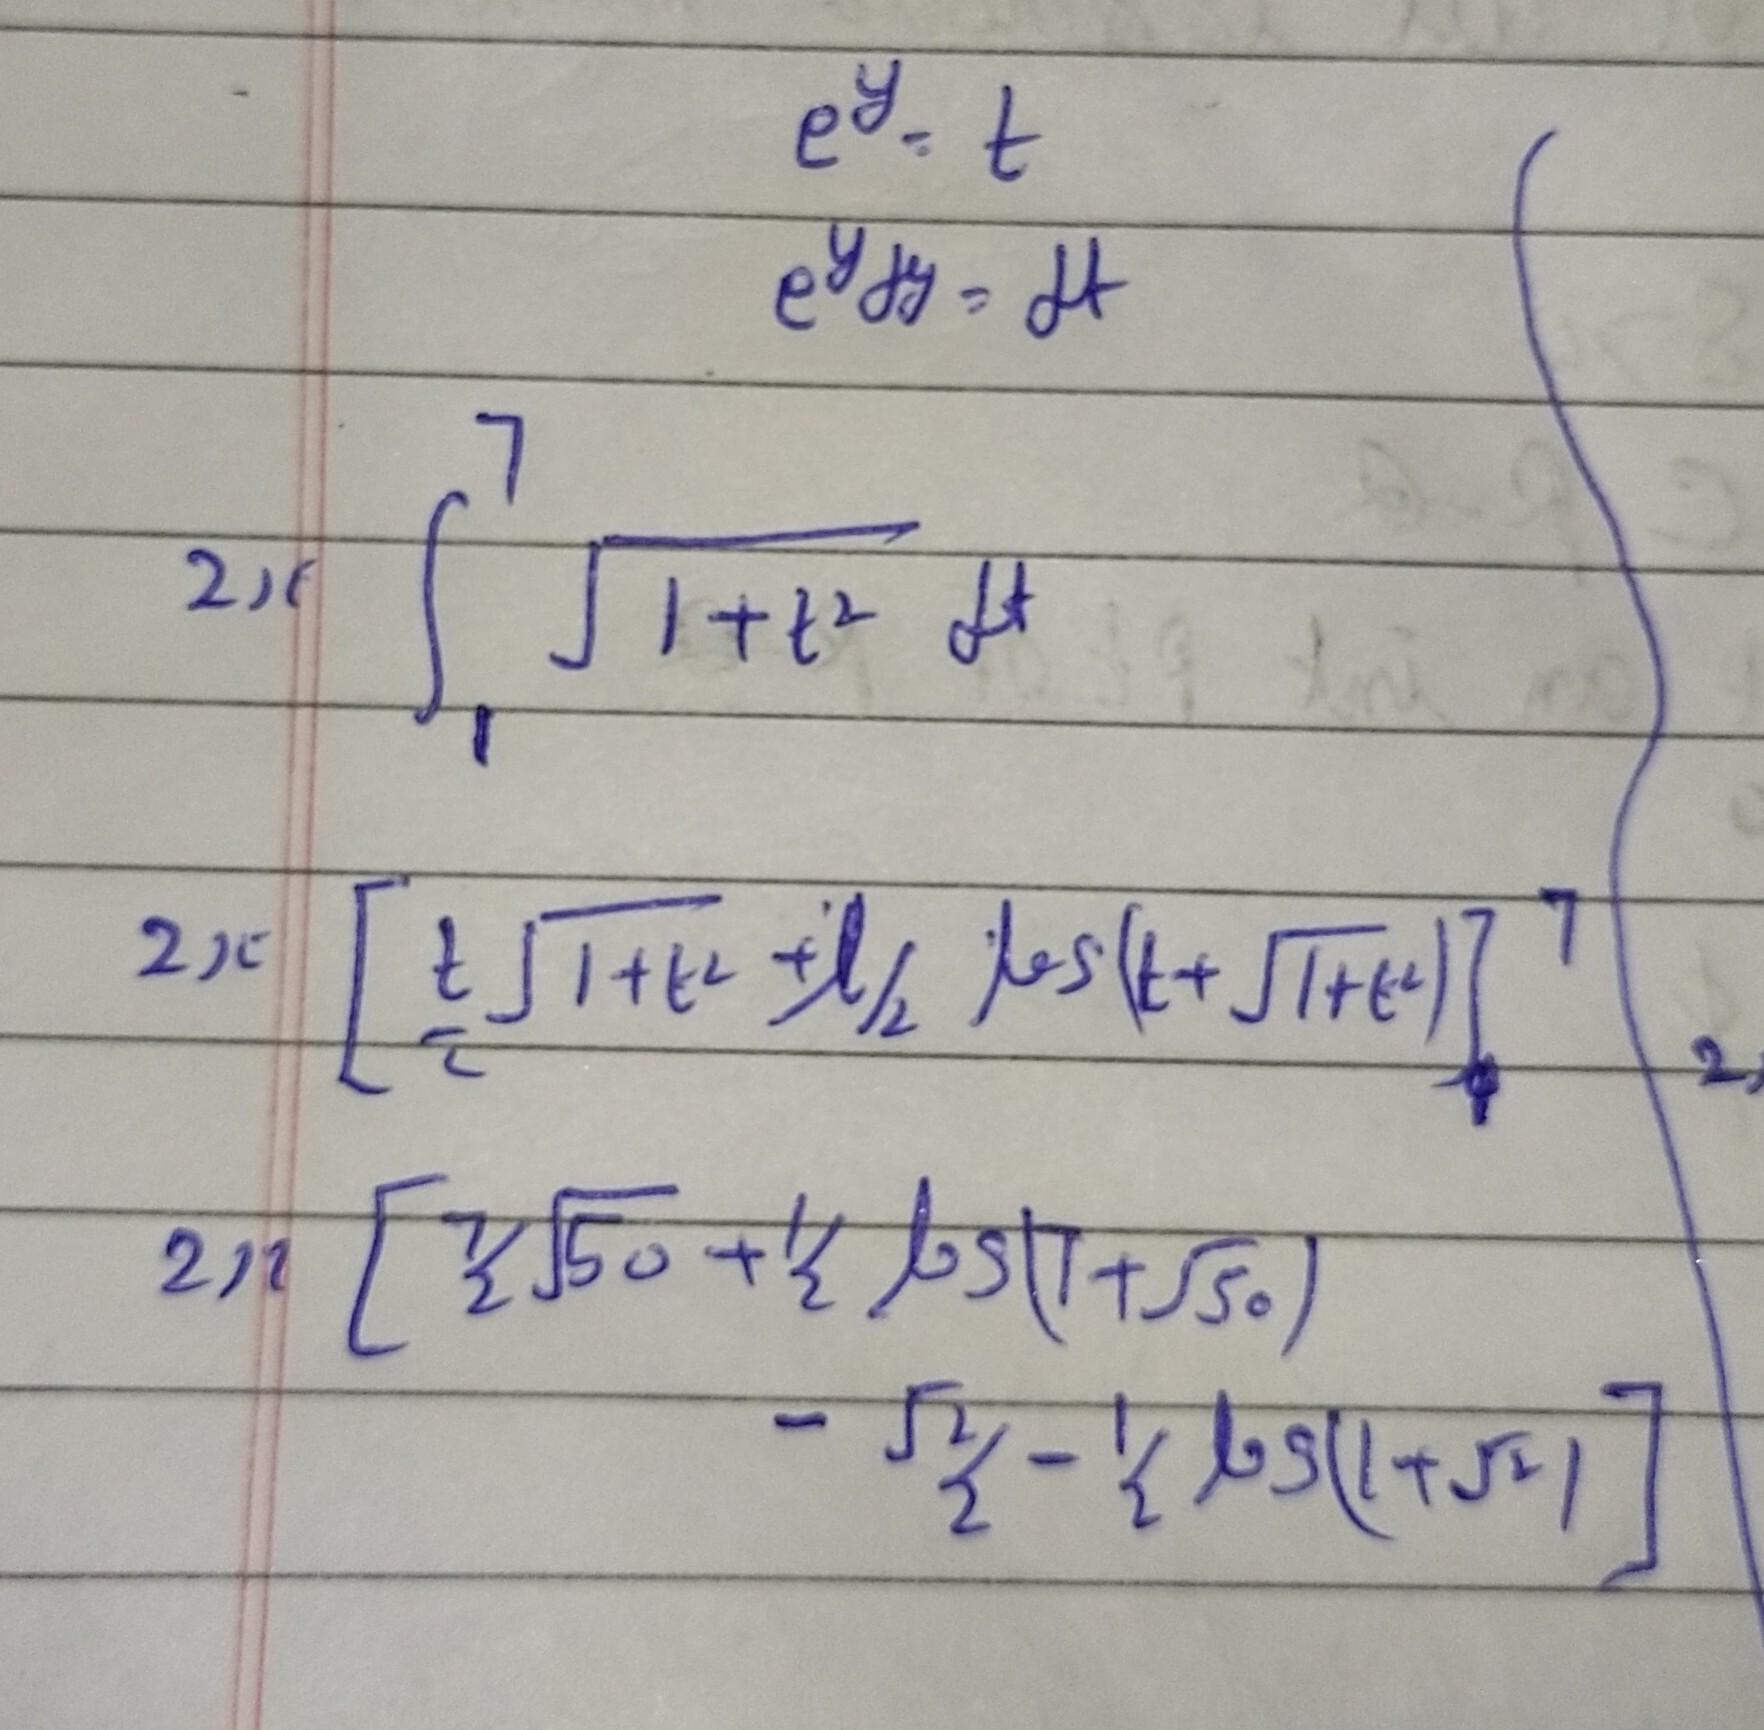 e^y = t
e^y dy = dt
2π ∫_1^7 √(1+t²) dt
2π [ t/2 √(1+t²) + 1/2 log(t+√(1+t²)) ]_1^7
2π [ 7/2 √50 + 1/2 log(7+√50)
- √2/2 - 1/2 log(1+√2) ]